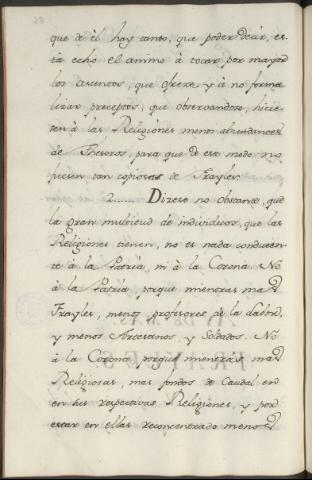 que de èl hay tanto, que poder decir, es-
ta echò el animo à tocar por mayor
los asuntos, que ofrece, y à no forma-
lizar preceptos, que observandose, hicie-
sen à las Religiònes menos abundantes
de Thesoros, para que de ese modo no
fuesen tan copiosas de Frayles.
2...... Direse no obstante, que
la gran multitud de individuos, que las
Religiònes tienen, no es nada conducen-
te à la Patria, ni à la Corona. No
à la Patria, porque mientras mas
Frayles, menos profesores de la Labor,
y menos Artesanos, y Soldados. No
à la Corona, porque mientras mas
Religiosas, mas fondos de Caudal en
en las respectivas Religiones, y por
estar en ellas reconcentrado menos